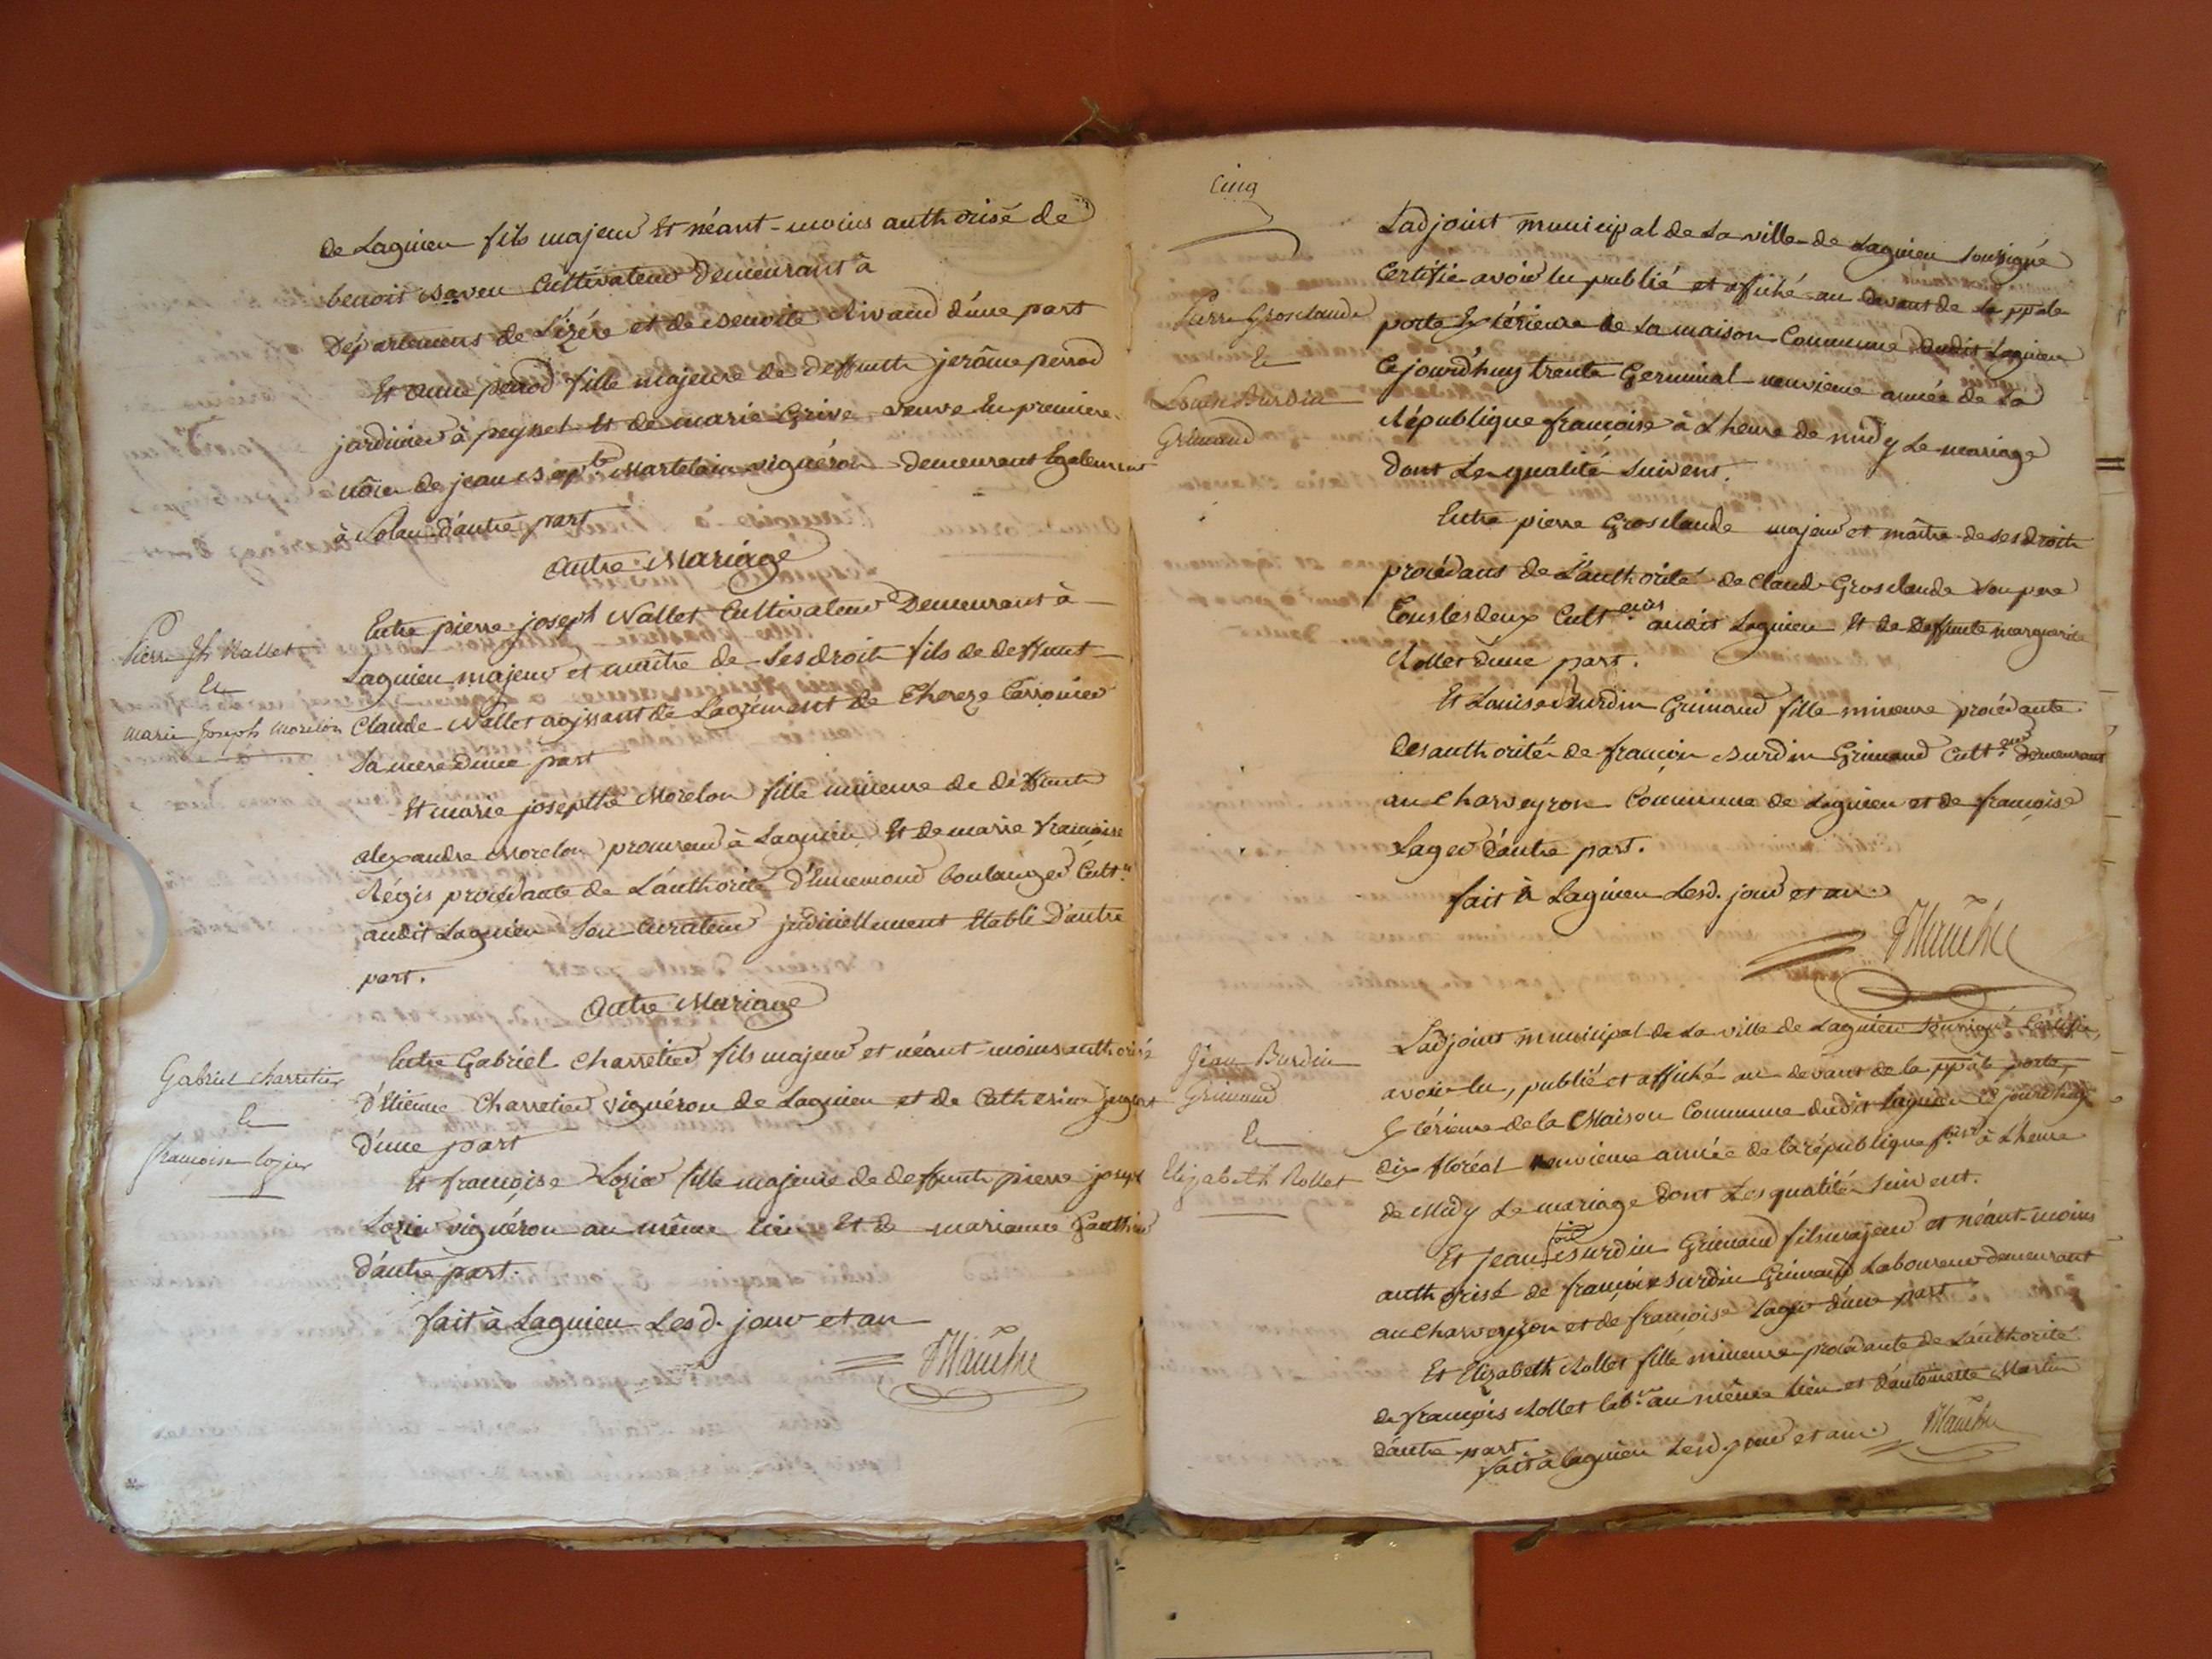 de Lagnieu fils majeur Et néant-moins authorisé de
benoit Cultivateur Demeurant à
Département de L'izére et de Benoite Rivaud d'une part
Et anne perrod fille majeure de deffunth jerôme perrod
jardinier à peyset Et de marie Grive veuve En premiere
nôces de jean Bapte Martelain vignéron demeurant Egalement
à Solau d'autre part
Autre Mariage
Pierre Jh Nallet
Et
marie Joseph Morelon
Entre pierre joseph Nallet Cultivateur Demeurant à
Lagnieu majeur et maître de ses droit fils de deffunt
Claude Nallet agissant de L'agrément de Thereze
Sa mere d'une part
Et marie josepthe Morelon fille mineure de deffunth
alexandre Morelon procureur à Lagnieu Et de marie françoise
Régis procédante de L'authorité d'Ennemond boulanger Cultr
audit Lagnieu Son Curateur judiciellement Etabli D'autre
part.
Autre Mariage
Gabriel Charretier
Et
Françoise lozier
Entre Gabriel Charretier fils majeur et néant-moins authorisé
d'Etienne Charretier vignéron de Lagnieu et de Catherine
D'une part
Et françoise Lozier fille majeure de deffunth pierre joseph
Lozier vignéron au même lieu Et de marianne Gauthier
d'autre part.
fait à Lagnieu Lesd. jour et an
Cinq
Pierre Grosclaude
Et
Louise Burdin
Grimaud
L'adjoint municipal de La ville de Lagnieu Soussigné
Certifie avoir lu publié et affiché au devant de La pple
porte Extérieure de La maison Commune dudit Lagnieu
Cejourd'huy trente Germinal neuvieme année de La
République françoise à L'heure de midy Le mariage
dont Les qualités Suivent.
Entre pierre Grosclaude majeur et maître de ses droits
procédant de L'authorité de Claude Grosclaude Son pere
Tous les deux Culteurs audit Lagnieu Et de Deffunte marguerite
Rollet d'une part.
Et Louise Burdin Grimaud fille mineure procédante
des authorités de françois Burdin Grimaud Culteur demeurant
au Charveyron Commune de Lagnieu et de françoise
Lager d'autre part.
fait à Lagnieu Lesd. jour et an
Jean Burdin
Grimaud
Et
Elizabeth Rollet
L'adjoint municipal de La ville de Lagnieu Soussigné Certifie,
avoir lu, publié et affiché au devant de la pple porte,
Extérieure de la Maison Commune dudit Lagnieu Cejourd'huy
dix floréal neuvieme année de la république frse à L'heure
de Midy Le mariage dont Les qualités suivent.
Et jean Burdin Grimaud fils majeur et néant-moins
authorisé de françois Burdin Grimaud Laboureur demeurant
au Charveyron et de françoise Lager d'une part
Et Elizabeth Rollet fille mineure procédante de L'authorité
de françois Rollet labr au même lieu et d'antoinette Martin
d'autre part.
fait à Lagnieu Lesd. jour et an